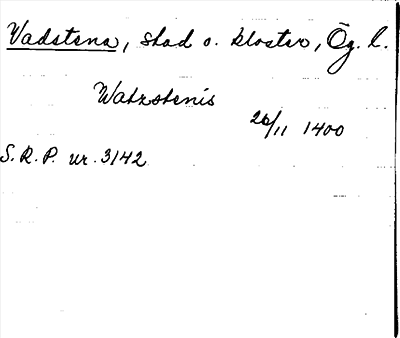 Vadstena, stad o. kloster, Ög. l.
Watzstenis
26/11 1400
S.R.P. nr. 3142